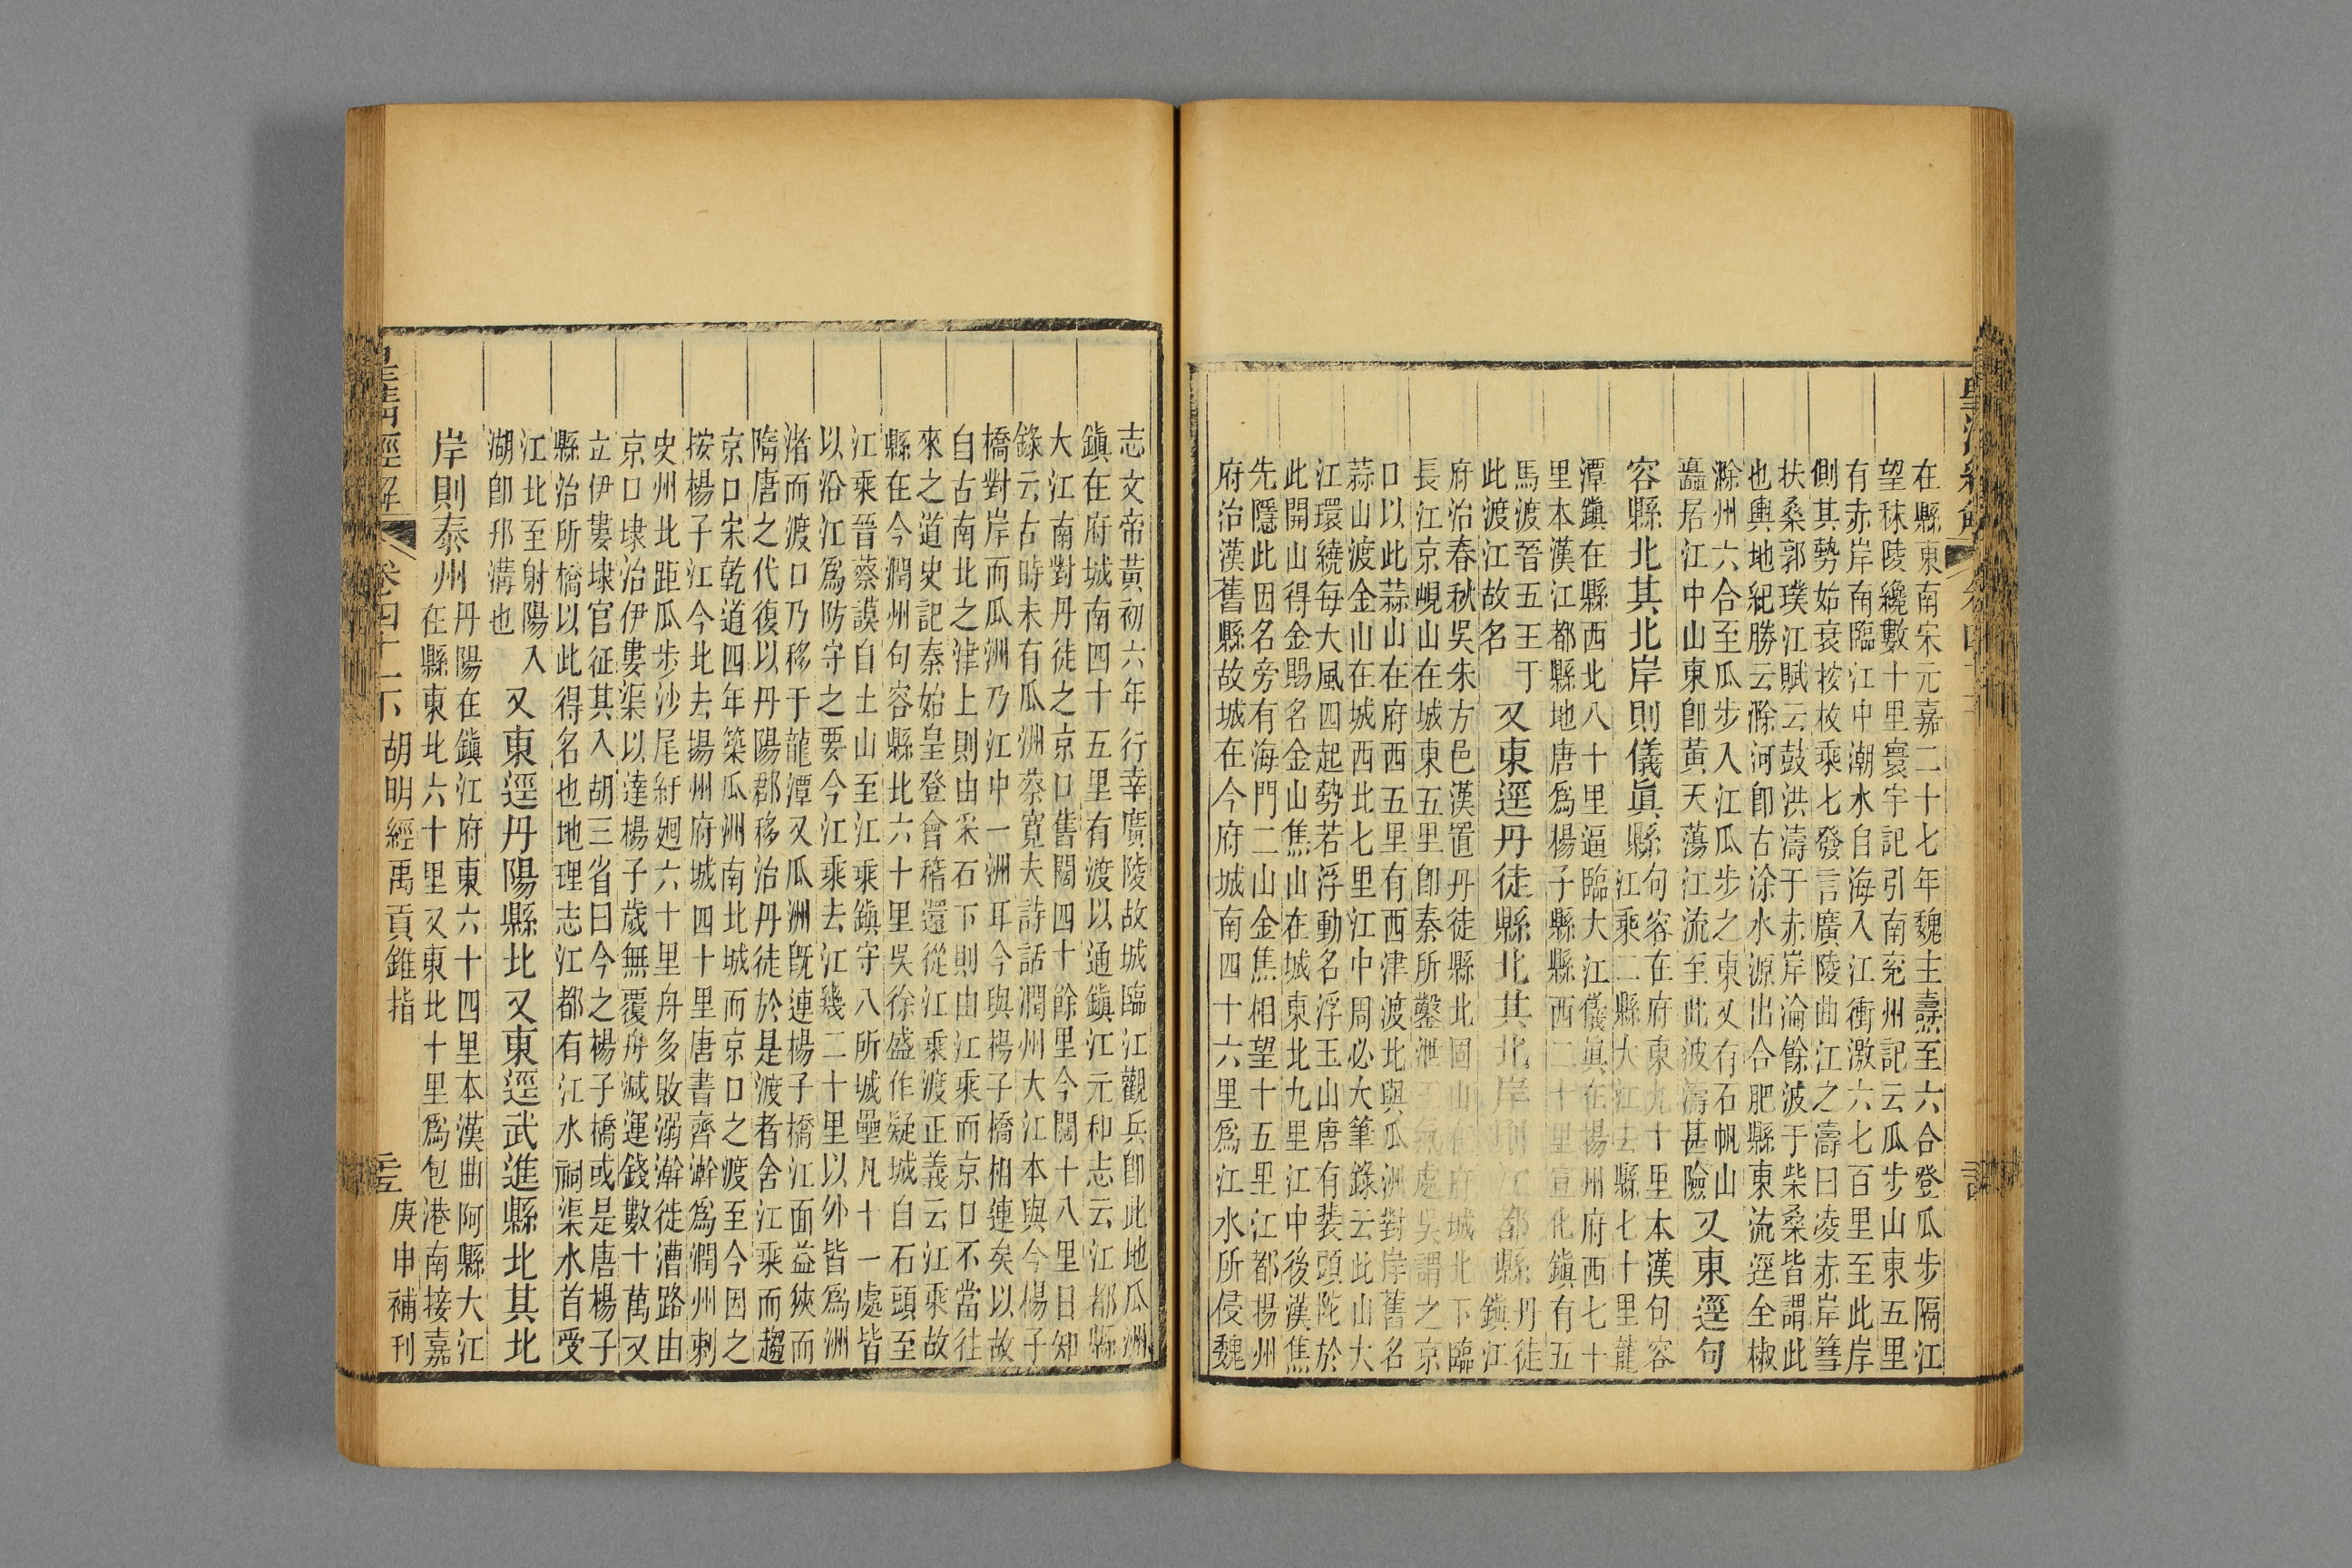 在縣東南宋元嘉二十七年魏主燾至六合登瓜步隔江
望秣陵纔數十里寰宇記引南兖州記云瓜步山東五里
有赤岸南臨江中潮水自海入江衝激六七百里至此岸
側其勢始衰按枚乘七發言廣陵曲江之濤曰凌赤岸篲
扶桑郭璞江賦云鼓洪濤于赤岸淪餘波于柴桑皆謂此
也輿地紀勝云滁河卽古涂水源出合肥縣東流逕全椒
滁州六合至瓜步入江瓜步之東又有石帆山
矗居江中山東卽黃天蕩江流至此波濤甚險
又東逕句
容縣北其北岸則儀眞縣
句容在府東九十里本漢句容
江乘二縣大江去縣七十里龍
潭鎭在縣西北八十里逼臨大江儀眞在楊州府西七十
里本漢江都縣地唐爲楊子縣縣西二十里宣化鎭有五
馬渡晉五王于
此渡江故名
又東逕丹徒縣北其北岸則江都縣
丹徒
鎭江
府治春秋吳朱方邑漢置丹徒縣北固山在府城北下臨
長江京峴山在城東五里卽秦所鑿泄王氣處吳謂之京
口以此蒜山在府西五里有西津渡北與瓜洲對岸舊名
蒜山渡金山在城西北七里江中周必大筆錄云此山大
江環繞每大風四起勢若浮動名浮玉山唐有裴頭陀於
此開山得金賜名金山焦山在城東北九里江中後漢焦
先隱此因名旁有海門二山金焦相望十五里江都揚州
府治漢舊縣故城在今府城南四十六里爲江水所侵魏
志文帝黃初六年行幸廣陵故城臨江觀兵卽此地瓜洲
鎭在府城南四十五里有渡以通鎭江元和志云江都縣
大江南對丹徒之京口舊闊四十餘里今闊十八里日知
錄云古時未有瓜洲蔡寬夫詩話潤州大江本與今楊子
橋對岸而瓜洲乃江中一洲耳今與楊子橋相連矣以故
自古南北之津上則由采石下則由江乘而京口不當往
來之道史記秦始皇登會稽還從江乘渡正義云江乘故
縣在今潤州句容縣北六十里吳徐盛作疑城自石頭至
江乘晉蔡謨自土山至江乘鎭守八所城壘凡十一處皆
以沿江爲防守之要今江乘去江幾二十里以外皆爲洲
渚而渡口乃移于龍潭又瓜洲旣連楊子橋江面益狹而
隋唐之代復以丹陽郡移治丹徒於是渡者舍江乘而趨
京口宋乾道四年築瓜洲南北城而京口之渡至今因之
按楊子江今北去揚州府城四十里唐書齊澣爲潤州刺
史州北距瓜步沙尾紆廻六十里舟多敗溺澣徙漕路由
京口埭治伊婁渠以達楊子歲無覆舟減運錢數十萬又
立伊婁埭官征其入胡三省曰今之楊子橋或是唐楊子
縣治所橋以此得名也地理志江都有江水祠渠水首受
江北至射陽入
湖卽邗溝也
又東逕丹陽縣北又東逕武進縣北其北
岸則泰州
丹陽在鎭江府東六十四里本漢曲阿縣大江
在縣東北六十里又東北十里爲包港南接嘉
皇淸經解
卷四十一下
胡明經禹貢錐指
庚申補刊